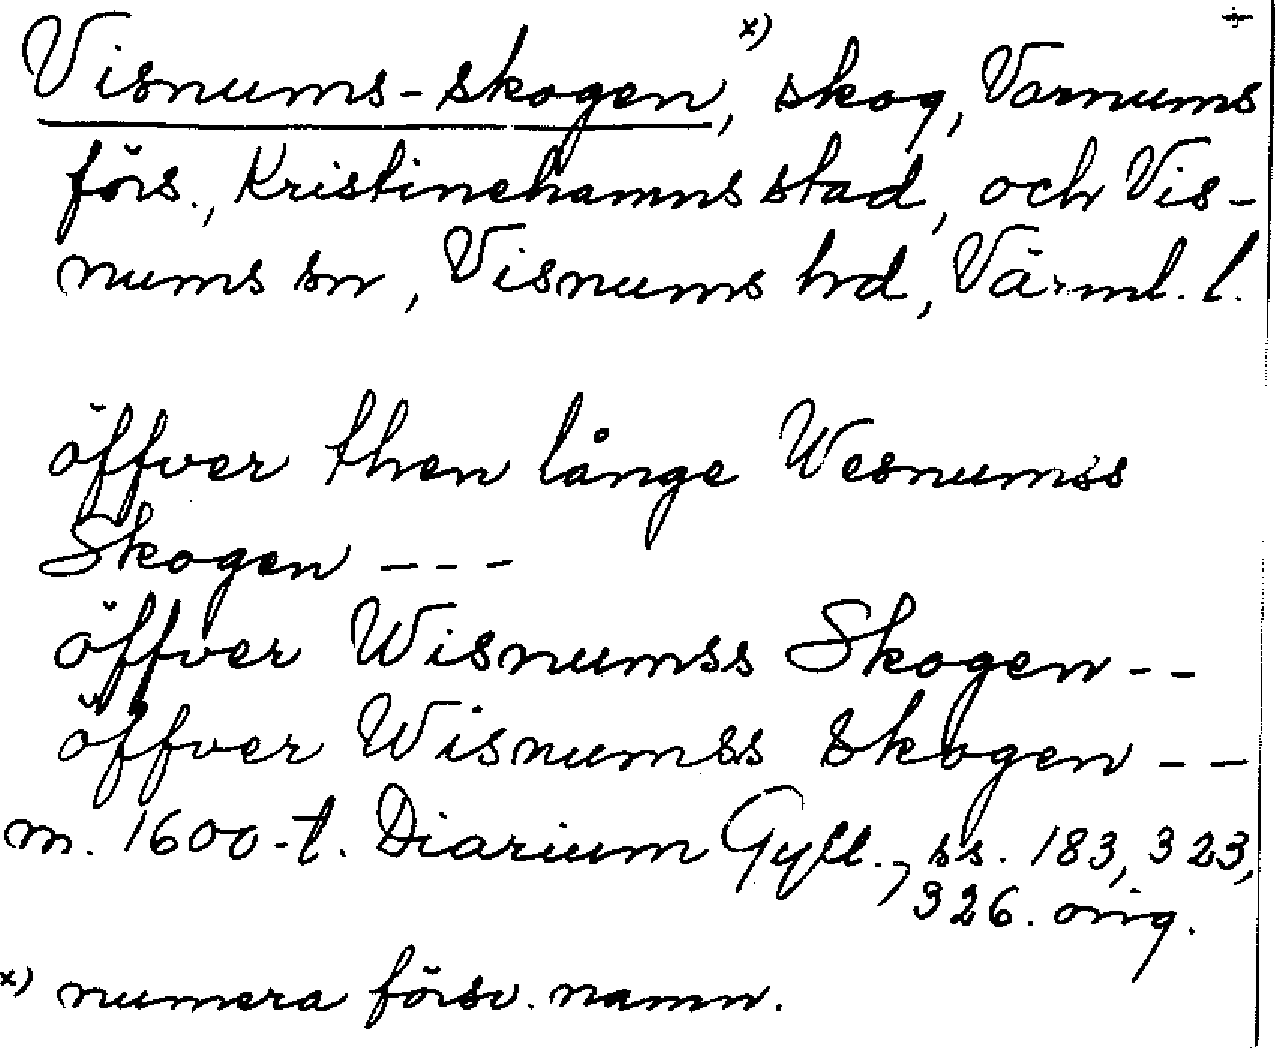 Visnums-skogen, x) skog, Varnums
förs., Kristinehamns stad, och Vis-
nums sn, Visnums hd, Värml. l.
öffver then långe Wesnumss
Skogen ---
öffver Wisnumss Skogen --
öffver Wisnumss skogen --
m. 1600-t. Diarium Gyll., ss. 183, 323,
326. orig.
x) numera försv. namn.